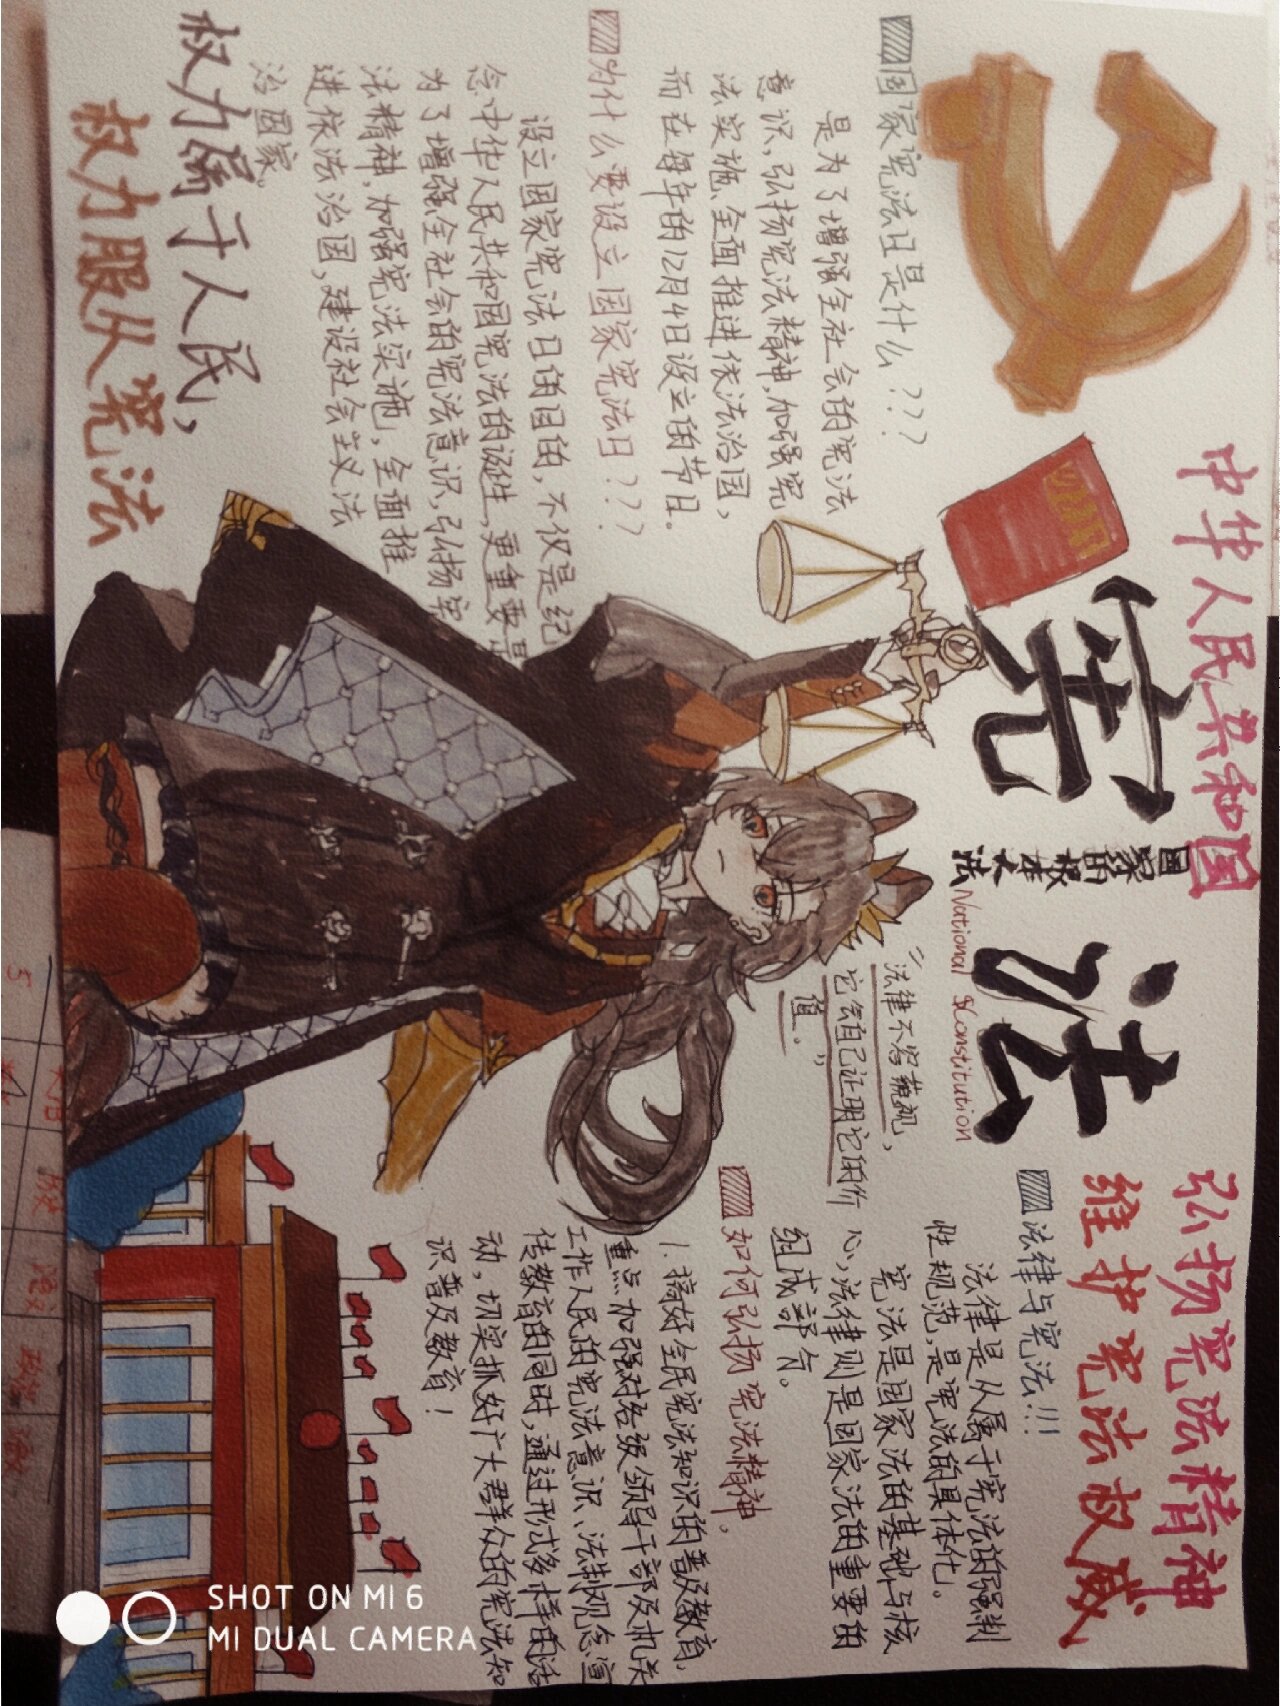 中华人民共和国
宪法
國家的根本大法
National $Constitution
弘扬宪法精神
维护宪法权威
国家宪法日是什么???
是为了增强全社会的宪法
意识,弘扬宪法精神,加强宪
法实施、全面推进依法治国,
而在每年的12月4日设立的节日。
为什么要设立国家宪法日???
设立国家宪法日的目的,不仅是纪
念中华人民共和国宪法的诞生,更重要是
为了增强全社会的宪法意识,弘扬宪
法精神,加强宪法实施,全面推
进依法治国,建设社会主义法
治國家。
权力属于人民,
权力服从宪法
“法律不容藐视,
它会自己证明它的价
值。”
法律与宪法!!!
法律是从属于宪法的强制
性规范,是宪法的具体化。
宪法是国家法的基础与核
心,法律则是国家法的重要的
组成部分。
如何弘扬宪法精神,
1.搞好全民宪法知识的普及教育,
重点加强对各级领导干部及机关
工作人民的宪法意识、法制观念宣
传教育的同时,通过形式多样的活
动,切实抓好广大群众的宪法知
识普及教育!
SHOT ON MI 6
MI DUAL CAMERA